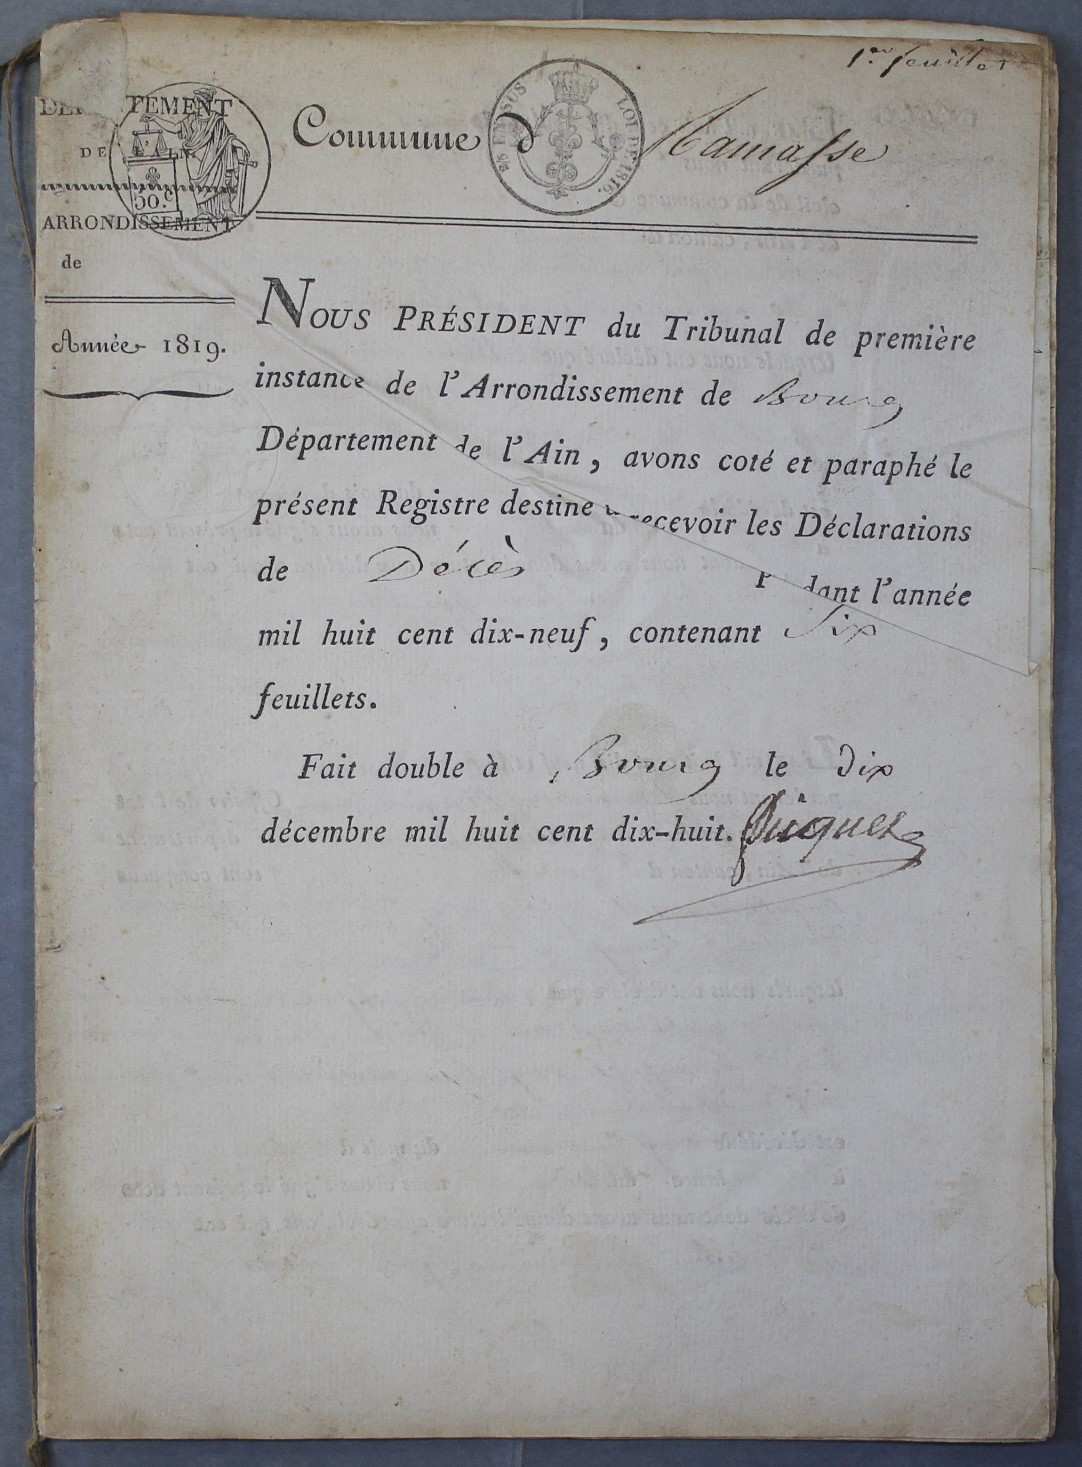 1.er feuillet
DÉPARTEMENT
DE L'AIN
ARRONDISSEMENT
de
Année 1819.
50.c
Commune d
EN SUS
LOI DE 1816.
Ramasse
NOUS PRÉSIDENT du Tribunal de première
instance de l'Arrondissement de Bourg
Département de l'Ain, avons coté et paraphé le
présent Registre destiné à recevoir les Déclarations
de Décès pendant l'année
mil huit cent dix-neuf, contenant Six
feuillets.
Fait double à Bourg le dix
décembre mil huit cent dix-huit.